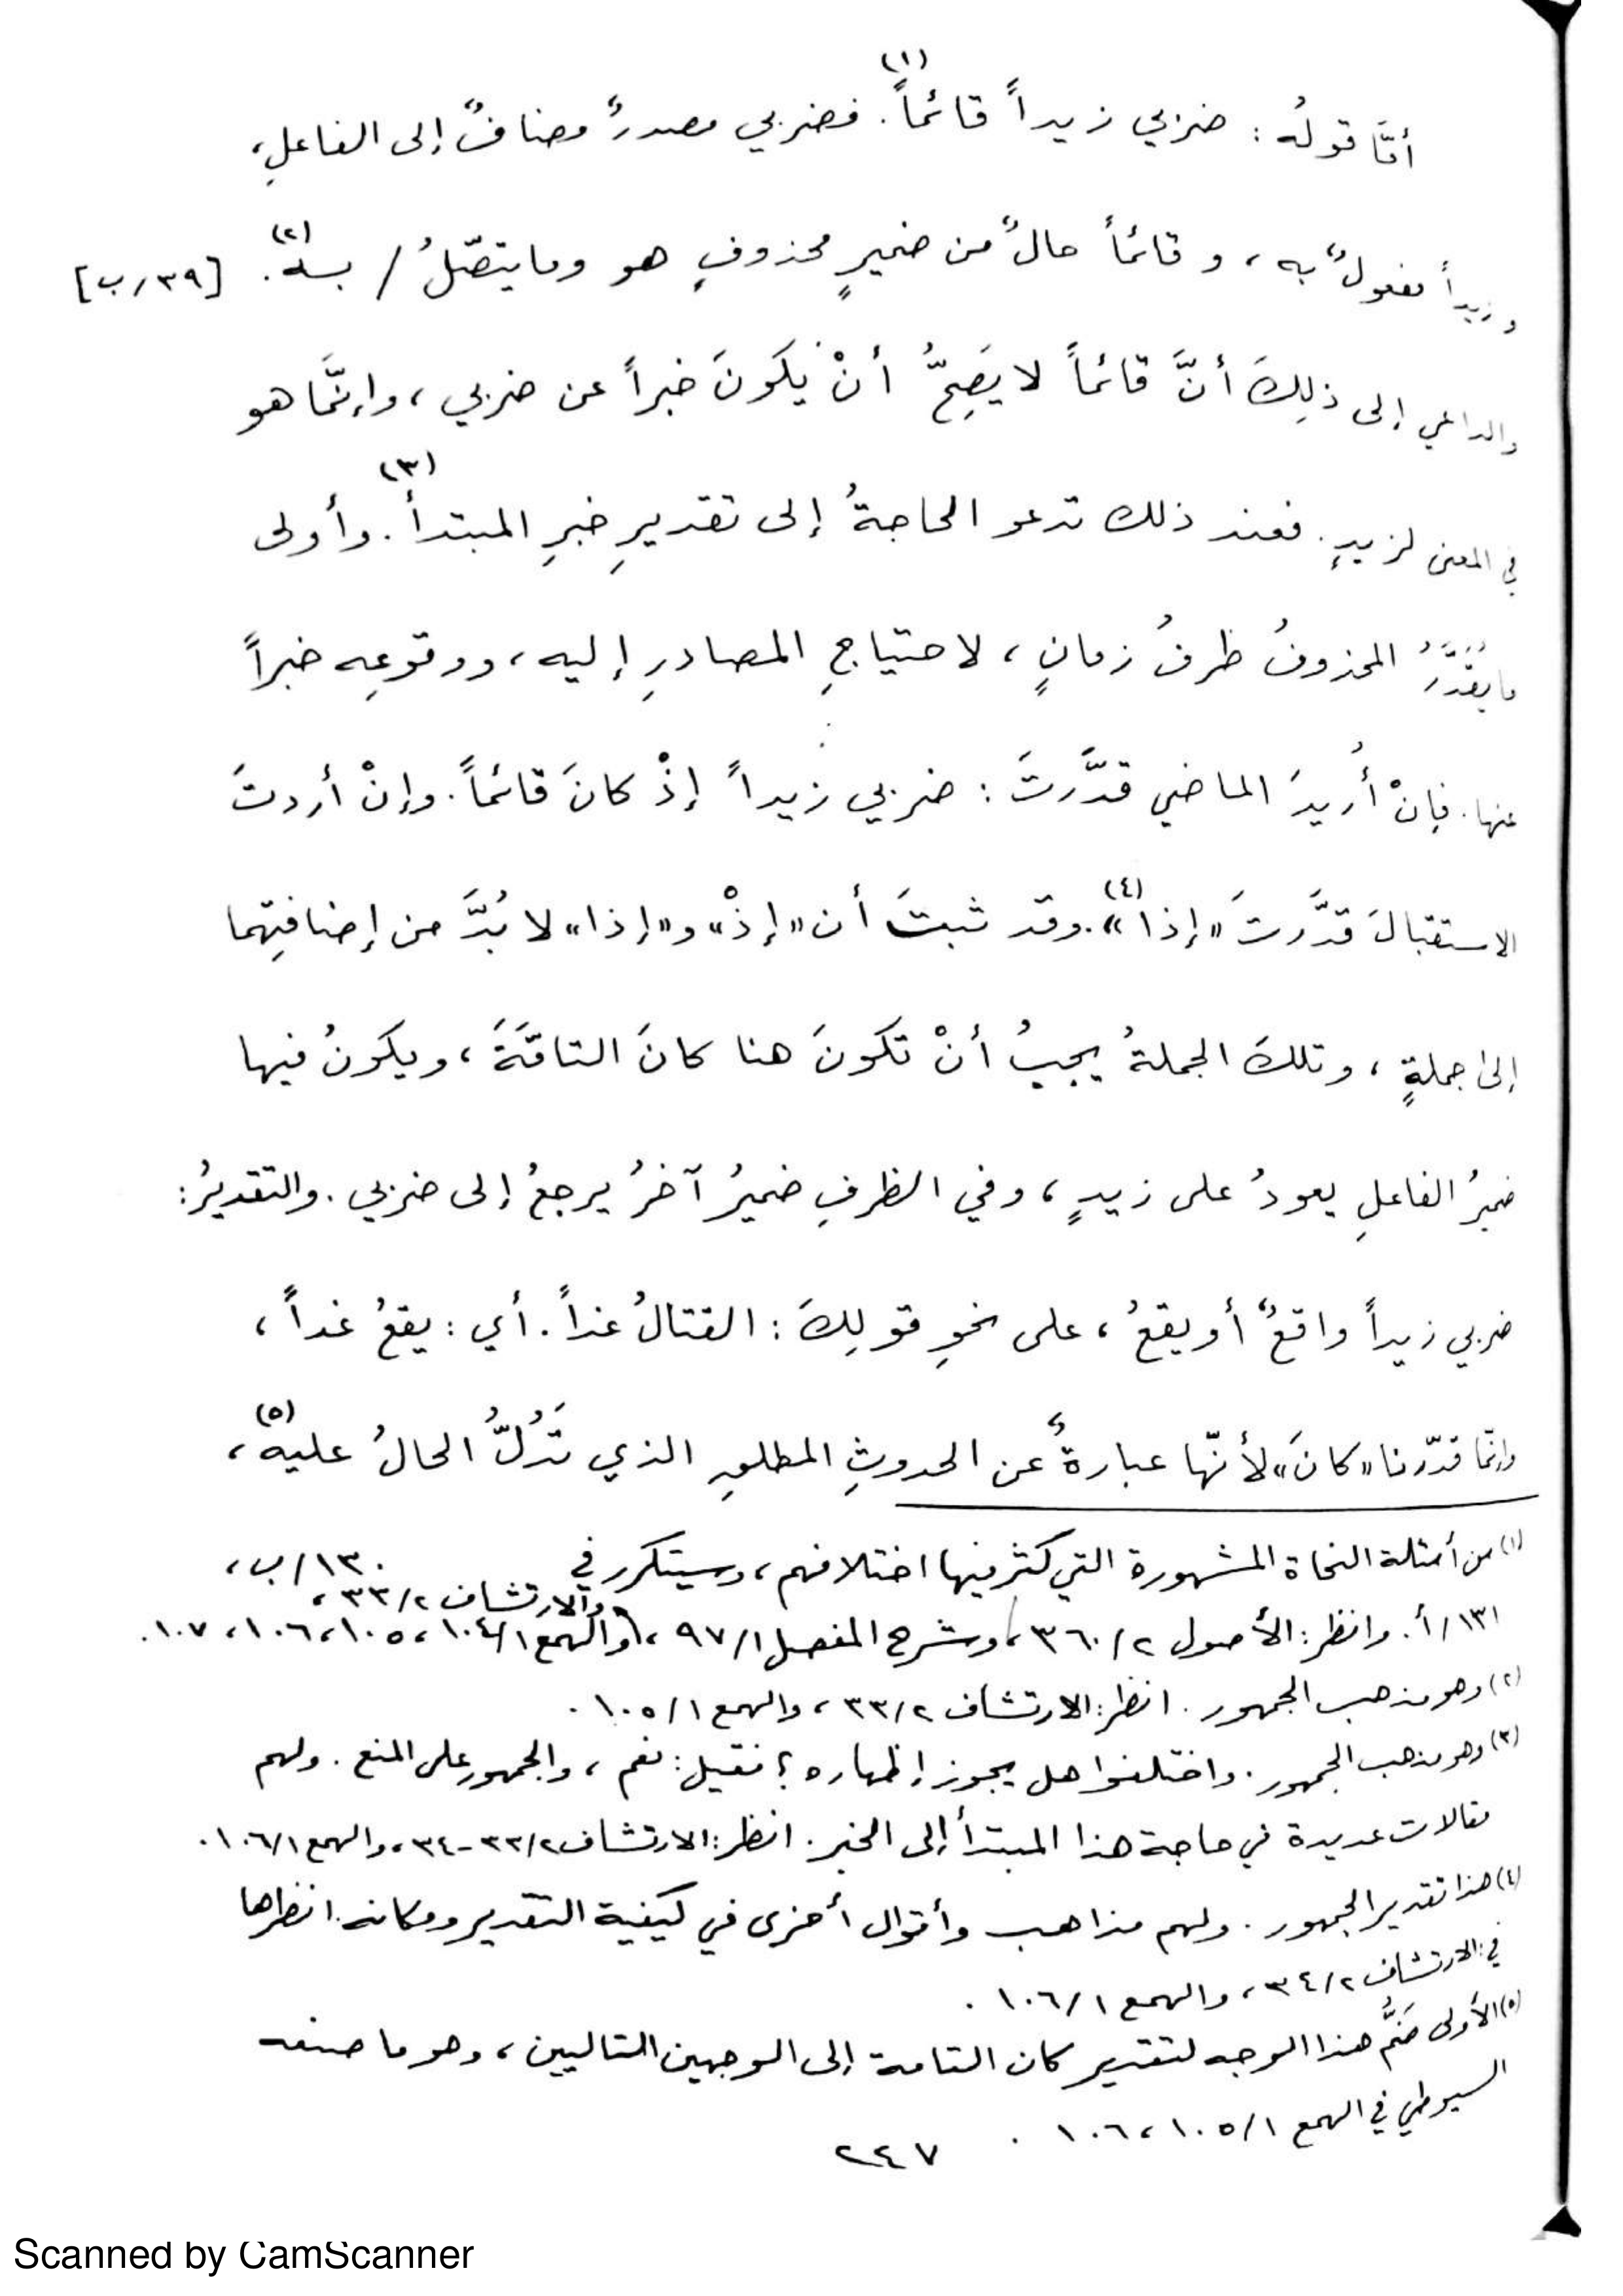 أمَّا قولُه : ضربي زيداً قائماً(١). فضربي مصدرٌ مضافٌ إلى الفاعلِ،
وزيداً مفعولٌ به ، وقائماً حالٌ من ضميرٍ محذوفٍ هو وما يتصّلُ / به(٢). [٣٩/ب]
والداعي إلى ذلِكَ أنَّ قائماً لا يَصِحُّ أنْ يكونَ خبراً عن ضربي ، وإنَّما هو
في المعنى لزيدٍ. فعند ذلك تدعو الحاجةُ إلى تقديرِ خبرِ المبتدأ(٣). وأولى
ما يُقَدَّرُ المحذوفُ ظرفُ زمانٍ ، لاحتياجِ المصادرِ إليه ، ووقوعِه خبراً
عنها. فإنْ أُريدَ الماضي قدَّرتَ : ضربي زيداً إذْ كانَ قائماً. وإنْ أردتَ
الاستقبالَ قدَّرتَ «إذا»(٤). وقد ثبتَ أن «إذْ» و«إذا» لا بُدَّ من إضافتِهما
إلى جملةٍ ، وتلكَ الجملةُ يجبُ أنْ تكونَ هنا كانَ التامَّةَ ، ويكونُ فيها
ضميرُ الفاعلِ يعودُ على زيدٍ ، وفي الظرفِ ضميرٌ آخرُ يرجعُ إلى ضربي . والتقديرُ:
ضربي زيداً واقعٌ أو يقعُ ، على نحوِ قولِكَ : القتالُ غداً. أي : يقعُ غداً ،
وإنّما قدّرنا «كانَ» لأنّها عبارةٌ عن الحدوثِ المطلقِ الذي تَدُلُّ الحالُ عليه(٥) ،
(١) من أمثلة النحاة المشهورة التي كثر فيها اختلافهم ، وسيتكرر في ١٣٠/ب ،
١٣١/أ. وانظر: الأصول ٣٦٠/٢ ، وشرح المفصل ٩٧/١ ، والارتشاف ٣٣/٢ ، والهمع ١٠٤/١ ، ١٠٥ ، ١٠٦ ، ١٠٧ .
(٢) وهو مذهب الجمهور . انظر: الارتشاف ٣٣/٢ ، والهمع ١٠٥/١ .
(٣) وهو مذهب الجمهور . واختلفوا هل يجوز إظهاره ؟ فقيل : نعم ، والجمهور على المنع . ولهم
مقالات عديدة في حاجة هذا المبتدأ إلى الخبر . انظر: الارتشاف ٣٣/٢-٣٤ ، والهمع ١٠٦/١ .
(٤) هذا تقدير الجمهور . ولهم مذاهب وأقوال أخرى في كيفية التقدير ومكانه. انظرها
في: الارتشاف ٣٤/٢ ، والهمع ١٠٦/١ .
(٥) الأولى ضَمُّ هذا الوجه لتقدير كان التامة إلى الوجهين التاليين ، وهو ما صنعه
السيوطي في الهمع ١٠٥/١ ، ١٠٦ .
٢٤٧
Scanned by CamScanner